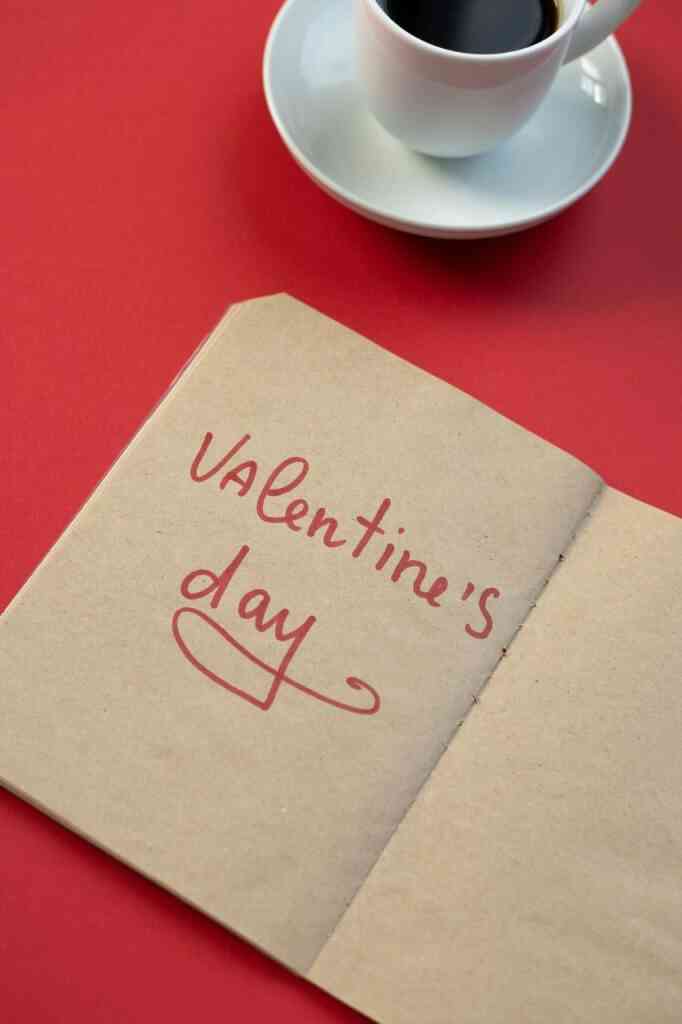 Valentine's
day